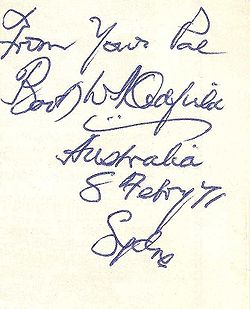 From Your Pal
Bert W A Oldfield
Australia
8 Febry 71
Sydney